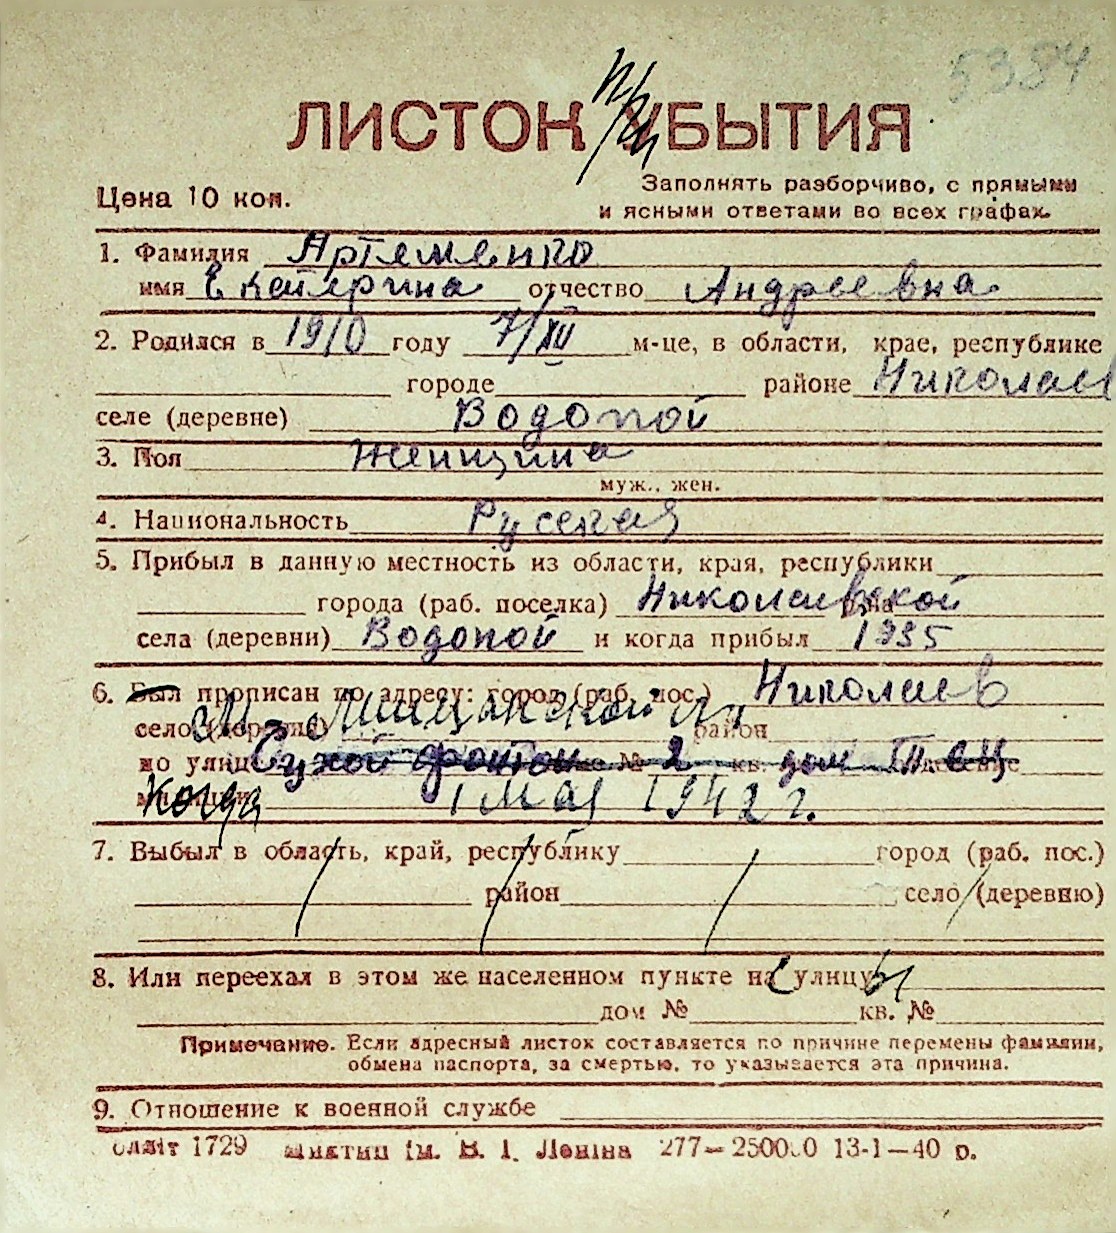 5384
ЛИСТОК УБЫТИЯ
При
Цена 10 коп.
Заполнять разборчиво, с прямыми
и ясными ответами во всех графах.
1. Фамилия Артеменко
имя Екатерина отчество Андреевна
2. Родился в 1910 году 7/XII м-це, в области, крае, республике
городе районе Николаев
селе (деревне) Водопой
3. Пол Женщина
муж., жен.
4. Национальность Русская
5. Прибыл в данную местность из области, края, республики
города (раб. поселка) Николаевской
села (деревни) Водопой и когда прибыл 1935
6. Был прописан по адресу: город (раб. пос.) Николаев
село (деревня) район
по улице Сухой фонтан № 2 кв. дом ТЭЦ
Когда 1 мая 1942 г.
7. Выбыл в область, край, республику город (раб. пос.)
район село (деревню)
8. Или переехал в этом же населенном пункте на с улицу ы
дом № кв. №
Примечание. Если адресный листок составляется по причине перемены фамилии,
обмена паспорта, за смертью, то указывается эта причина.
9. Отношение к военной службе
1729 ім. В. І. Леніна 277—250000 13-1—40 р.